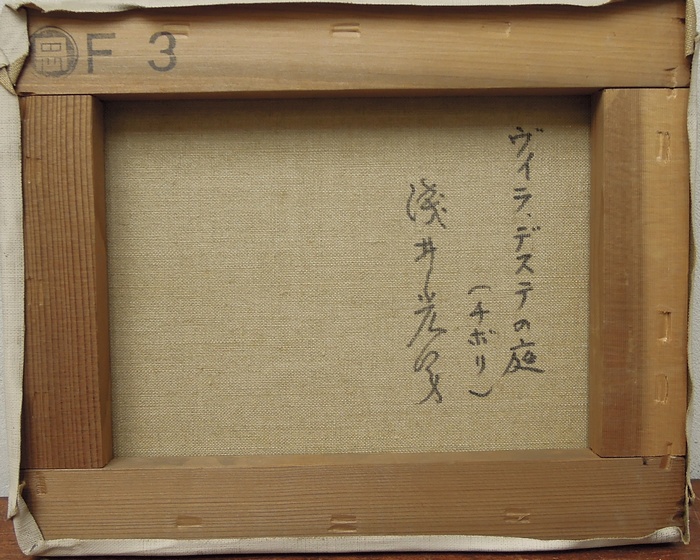 岡 F 3
ヴィラ、デステの庭
(チボリ)
浅井光男